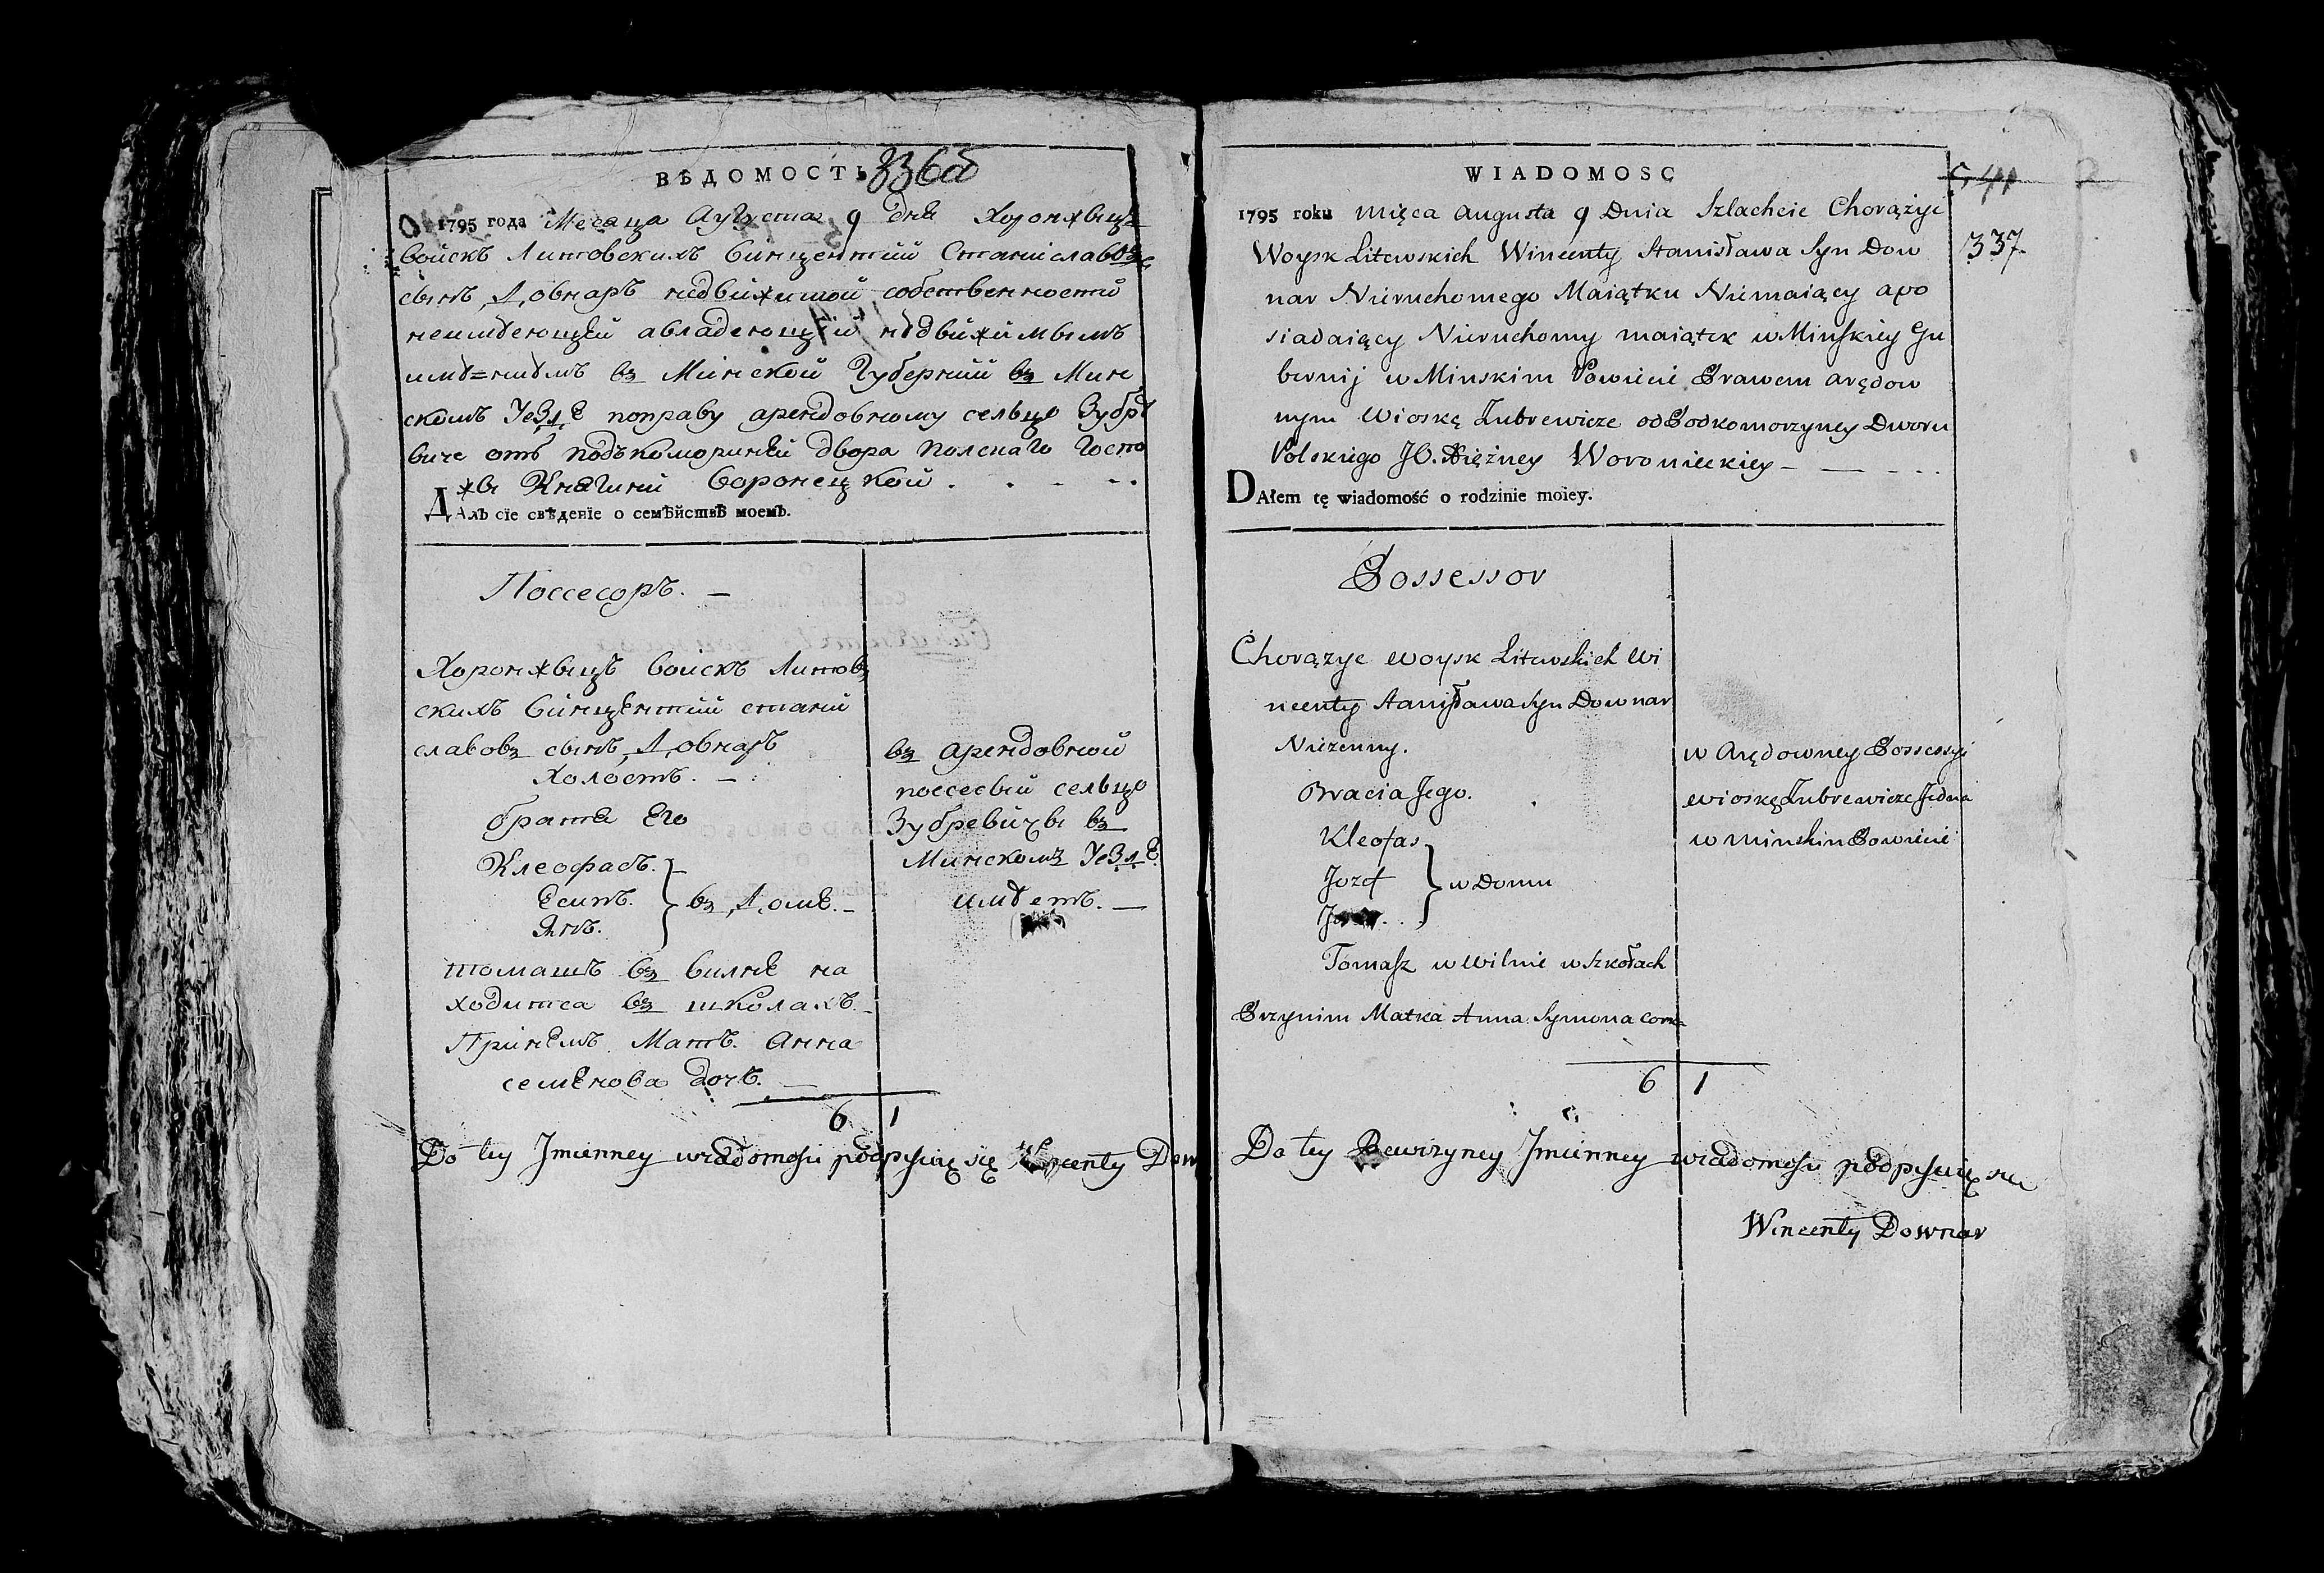 ВѢДОМОСТЬ 336об
1795 года Месаца Августа 9 дня Хоронжвицъ
войскъ Литовскихъ Винцентiй Станиславовъ
сынъ Довнаръ недвижимой собственности
неимѣющей авладеющей нѣдвижимымъ
имѣ=нiѣмъ въ Минской Губернiй въ Мин
скомъ Уездѣ поправу арендовному сельцо Зубрѣ
виче отъ подъкоморинѣй двора полскаго Госпо
жы Княгинi Воронецкой . . - - .
ДАлъ сïе свѣденïе о семѣйствѣ моемъ.
Поссесоръ. —
Хоронжвицъ войскъ Литовъ
скихъ Винцентiй станi
славовъ сынъ Довнаръ
Холостъ. —
братя Его
Клеофасъ.
Есипъ. } въ Домѣ. —
Янъ.
томашъ въ вилнѣ на
ходитса въ школахъ. -
Принемъ Матъ. Анна
семѣнова дочъ. —
въ арендовной
поссесыи сельцо
Зубревичы въ
Минскомъ Уездѣ
имѣетъ. —
6 | 1
Do tey Jmienney wiadomości podpisuię się Wincenty Dow
WIADOMOSC
541
337
1795 roku Mięca Augusta 9 Dnia Szlachcic Chorążyc
Woysk Litewskich Wincenty Stanisława Syn Dow
nar Nieruchomego Maiątku Niemaiący a po
siadaiący Nieruchomy maiątek w Minskiey Gu
bernij w Minskim Powiecie Prawem arędow
nym Wioskę Zubrewicze od Podkomorzyney Dworu
Polskiego JO. Xiężney Woronieckiey - — - - . .
DAłem tę wiadomość o rodzinie moiey.
Possessor
Chorązyc woysk Litewskich Wi
ncenty Stanisława Syn Downar
Nieżenny.
Bracia Jego.
Kleofas
Jozef } w Domu
Tomasz w Wilnie w Szkołach
Przynim Matka Anna Symona corka
w Arędowney Possessyi
wioskę Zubrewicze Jedna
w Minskim Powiecie
6 | 1
Do tey Rewizyney Jmienney wiadomości podpisuię się
Wincenty Downar